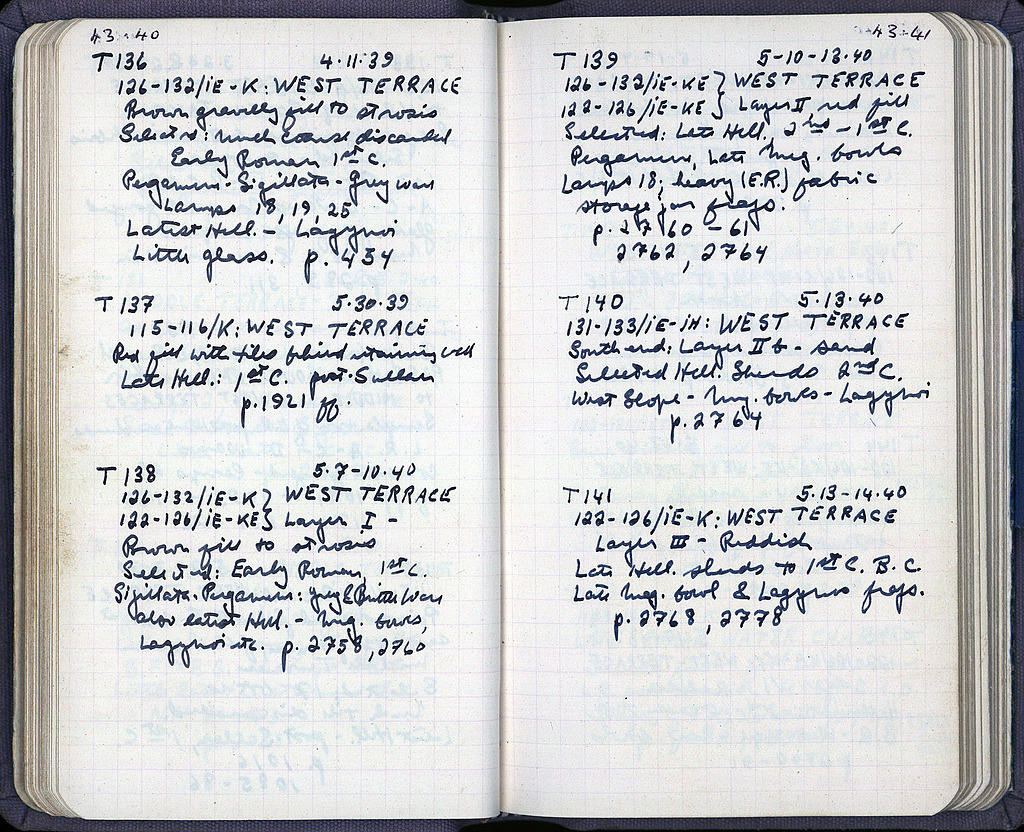 43·40
T 136 4·11·39
126-132/iE-K: WEST TERRACE
Brown gravelly fill to strosis
Selected: much coarse discarded
Early Roman 1st C.
Pergamum - Sigillata - Grey ware
Lamps 18, 19, 25
Latest Hell. - Lagynoi
Little glass. p. 434
T 137 5·30·39
115-116/K: WEST TERRACE
Red fill with tiles behind retaining wall
Late Hell.: 1st C. post-Sullan
p. 1921 ff
T 138 5·7-10·40
126-132/iE-K } WEST TERRACE
122-126/iE-KE } Layer I -
Brown fill to strosis
Selected: Early Roman, 1st C.
Sigillata. Pergamum: Grey & Ware
also latest Hell. - Meg. bowls,
Lagynoi etc. p. 2758, 2760
43·41
T 139 5-10-13·40
126-132/iE-KE } WEST TERRACE
122-126/iE-KE } Layer II red fill
Selected: Late Hell. 2nd - 1st C.
Pergamum, Late Meg. bowls
Lamps 18, heavy (E.R.) fabric
storage jar frags.
p. 2760 - 61
2762, 2764
T 140 5·13·40
131-133/iE-iH: WEST TERRACE
South end: Layer II b - sand
Selected Hell. Sherds 2nd C.
West Slope - Meg. bowls - Lagynoi
p. 2764
T 141 5·13-14·40
122-126/iE-K: WEST TERRACE
Layer III - Reddish
Late Hell. sherds to 1st C. B.C.
Late Meg. bowl & Lagynos frags.
p. 2768, 2778